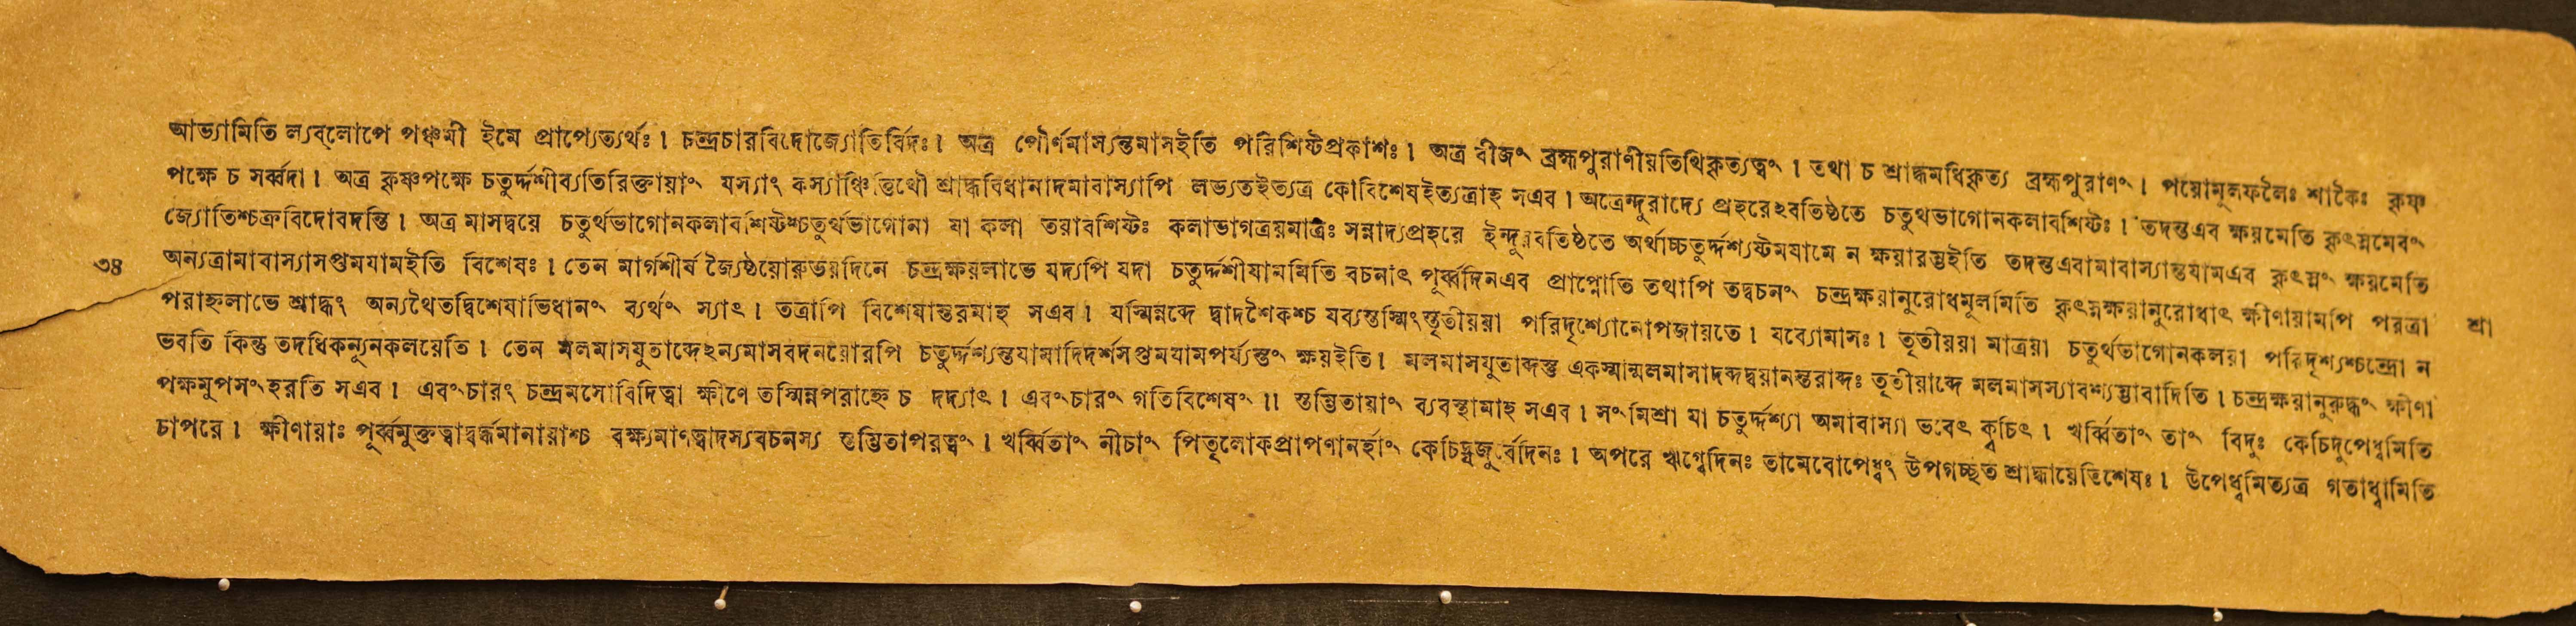 আভ্যামিতি ল্যব্লোপে পঞ্চমী ইমে প্রাপ্যেত্যর্থঃ। চন্দ্রচারবিদোজ্যোতির্বিদঃ। অত্র পৌর্ণমাস্যন্তমাসইতি পরিশিষ্টপ্রকাশঃ। অত্র বীজং ব্রহ্মপুরাণীয়তিথিকৃত্যত্বং। তথা চ শ্রাদ্ধমধিকৃত্য ব্রহ্মপুরাণং। পয়োমূলফলৈঃ শাকৈঃ কৃষ্ণ
পক্ষে চ সর্ব্বদা। অত্র কৃষ্ণপক্ষে চতুর্দ্দশীব্যতিরিক্তায়াং যস্যাং কস্যাঞ্চিত্তিথৌ শ্রাদ্ধবিধানাদমাবাস্যাপি লভ্যতইত্যত্র কোবিশেষইত্যত্রাহ সএব। অত্রেন্দুরাদ্যে প্রহরেঽবতিষ্ঠতে চতুথভাগোনকলাবশিষ্টঃ। তদন্তএব ক্ষয়মেতি কৃৎস্নমেবং
জ্যোতিশ্চক্রবিদোবদন্তি। অত্র মাসদ্বয়ে চতুর্থভাগোনকলাবশিষ্টশ্চতুর্থভাগোনা যা কলা তয়াবশিষ্টঃ কলাভাগত্রয়মাত্রঃ সন্নাদ্যপ্রহরে ইন্দুরবতিষ্ঠতে অর্থাচ্চতুর্দ্দশ্যষ্টমযামে ন ক্ষয়ারম্ভইতি তদন্তএবামাবাস্যান্তযামএব কৃৎস্নং ক্ষয়মেতি
৩৪ অন্যত্রামাবাস্যাসপ্তমযামইতি বিশেষঃ। তেন মার্গশীর্ষ জ্যৈষ্ঠয়োরুভয়দিনে চন্দ্রক্ষয়লাভে যদ্যপি যদা চতুর্দ্দশীযামমিতি বচনাৎ পূর্ব্বদিনএব প্রাপ্নোতি তথাপি তদ্বচনং চন্দ্রক্ষয়ানুরোধমূলমিতি কৃৎস্নক্ষয়ানুরোধাৎ ক্ষীণায়ামপি পরত্রা শ্রা
পরাহ্ণলাভে শ্রাদ্ধং অন্যথৈতদ্বিশেষাভিধানং ব্যর্থং স্যাৎ। তত্রাপি বিশেষান্তরমাহ সএব। যস্মিন্নব্দে দ্বাদশৈকশ্চ যব্যস্তস্মিংস্তৃতীয়য়া পরিদৃশ্যোনোপজায়তে। যব্যোমাসঃ। তৃতীয়য়া মাত্রয়া চতুর্থভাগোনকলয়া পরিদৃশ্যশ্চন্দ্রো ন
ভবতি কিন্তু তদধিকন্যূনকলয়েতি। তেন মলমাসযুতাব্দেঽন্যমাসবদনয়োরপি চতুর্দ্দশ্যন্তযামাদিদর্শসপ্তমযামপর্য্যন্তং ক্ষয়ইতি। মলমাসযুতাব্দস্তু একস্মান্মলমাসাদব্দদ্বয়ানন্তরাব্দঃ তৃতীয়াব্দে মলমাসস্যাবশ্যম্ভাবাদিতি। চন্দ্রক্ষয়ানুরুদ্ধং ক্ষীণা
পক্ষমুপসংহরতি সএব। এবংচারং চন্দ্রমসোবিদিত্বা ক্ষীণে তস্মিন্নপরাহ্ণে চ দদ্যাৎ। এবংচারং গতিবিশেষং॥ স্তম্ভিতায়াং ব্যবস্থামাহ সএব। সংমিশ্রা যা চতুর্দ্দশ্যা অমাবাস্যা ভবেৎ ক্বচিৎ। খর্ব্বিতাং তাং বিদুঃ কেচিদুপেধ্বমিতি
চাপরে। ক্ষীণায়াঃ পূর্ব্বমুক্তত্বাদ্বর্দ্ধমানায়াশ্চ বক্ষ্যমাণত্বাদস্যবচনস্য স্তম্ভিতাপরত্বং। খর্ব্বিতাং নীচাং পিতৃলোকপ্রাপণানর্হাং কেচিদ্যজুর্ব্বেদিনঃ। অপরে ঋগ্বেদিনঃ তামেবোপেধ্বং উপগচ্ছত শ্রাদ্ধায়েতিশেষঃ। উপেধ্বমিত্যত্র গতাধ্বামিতি